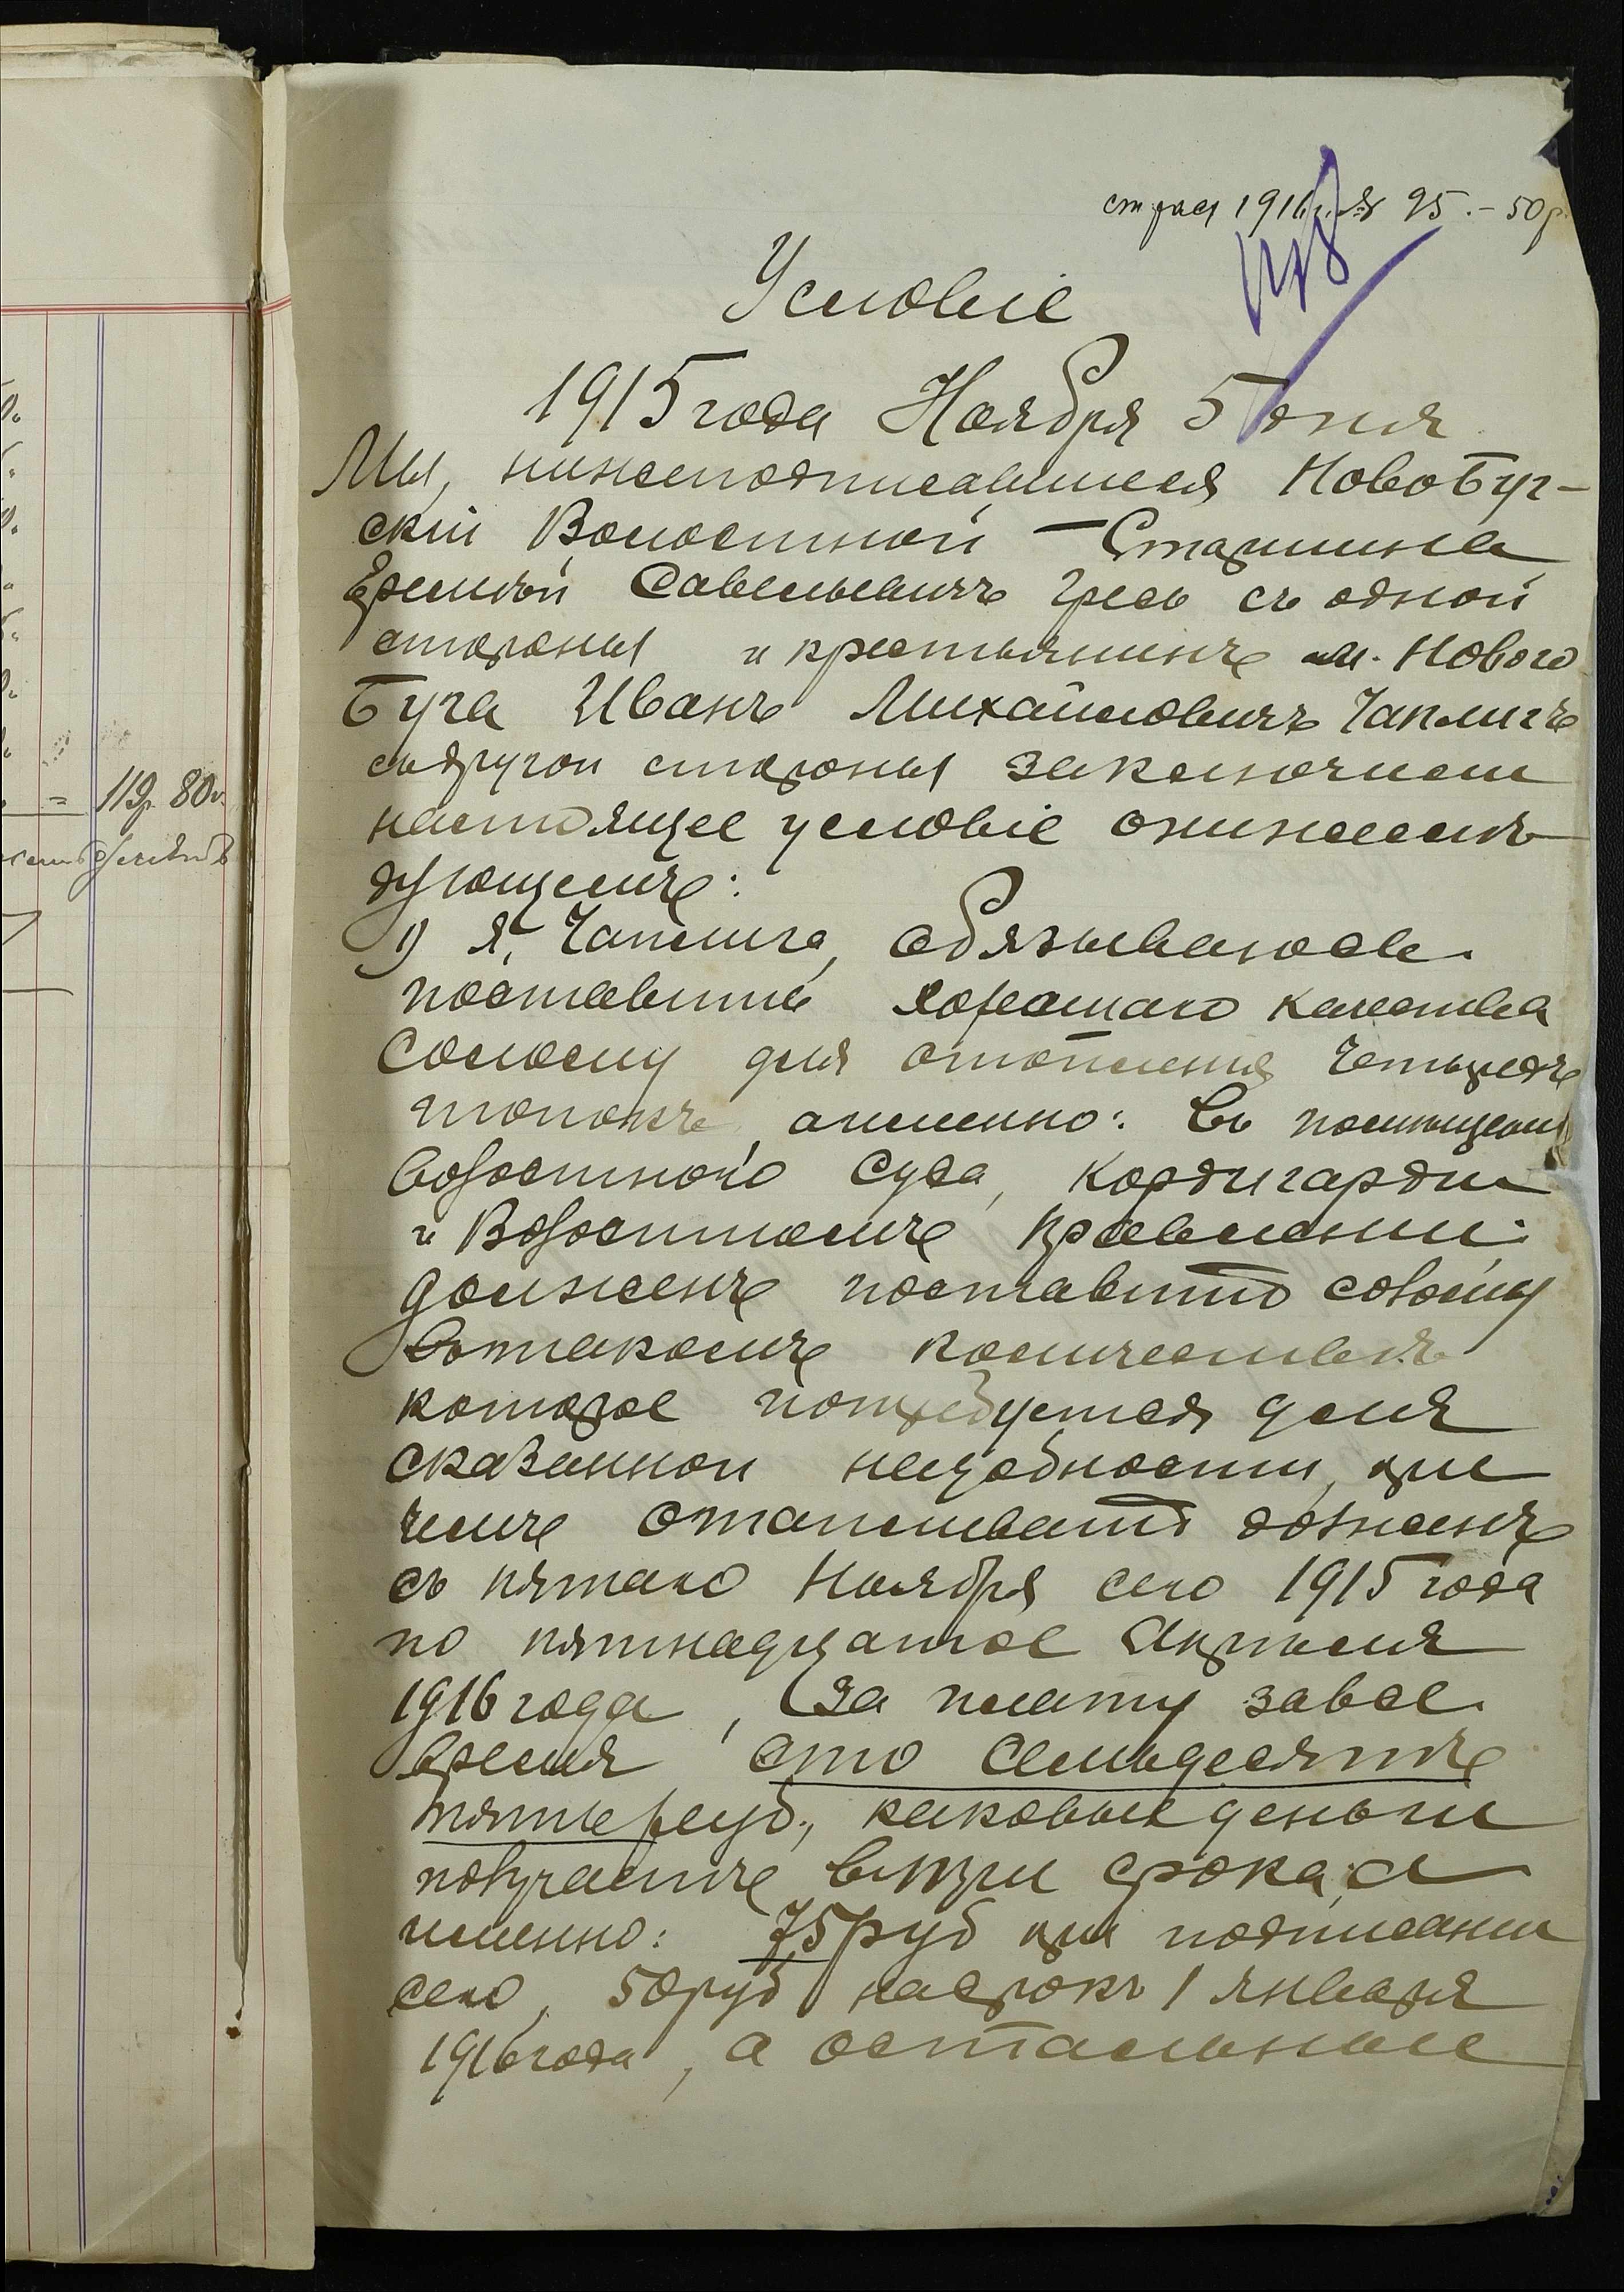 ст рас 1916 г. № 95. - 50 р.
Условіе
1915 года Ноября 5 дня
Мы, нижеподписавшиеся Ново Буг-
скій Волостной Старшина
Еремѣй Савельевичъ Гресь съ одной
стороны и крестьянинъ м. Новаго
Буга Иванъ Михайловичъ Чаплигъ
съ другой стороны заключили
настоящее условіе о нижеслѣ-
дующемъ:
1) Я, Чаплига, обязываюсь
поставить хорошаго качества
солому для отопленія четырехъ
топокъ, а именно: въ помѣщеніи
Волостного Суда, кордигардіи
и Волостномъ Правленіи;
долженъ поставить солому
въ такомъ количествѣ
которое потребуется для
сказанной надобности, при
чемъ отапливать долженъ
съ пятаго Ноября сего 1915 года
по пятнадцатое Апрѣля
1916 года, за плату за все
время сто семьдесятъ
пять руб., каковыя деньги
получаетъ въ три срока, а
именно: 75 руб при подписаніи
сего, 50 руб на срокъ 1 января
1916 года, а остальные
= 119 р. 80 к.